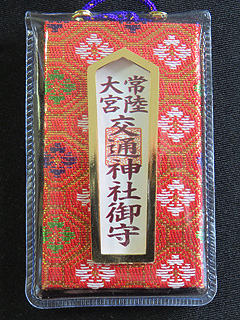 常陸
大宮
交通神社御守